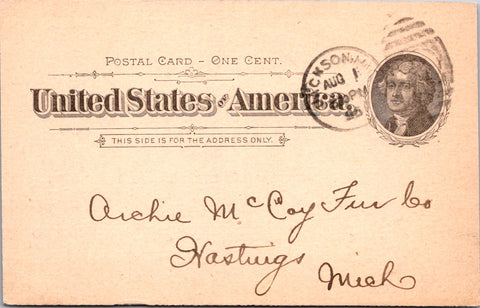 POSTAL CARD - ONE CENT.
United States OF America.
THIS SIDE IS FOR THE ADDRESS ONLY.
JACKSON, MICH
AUG 1
PM
Archie McCoy Fur Co
Hastings
Mich